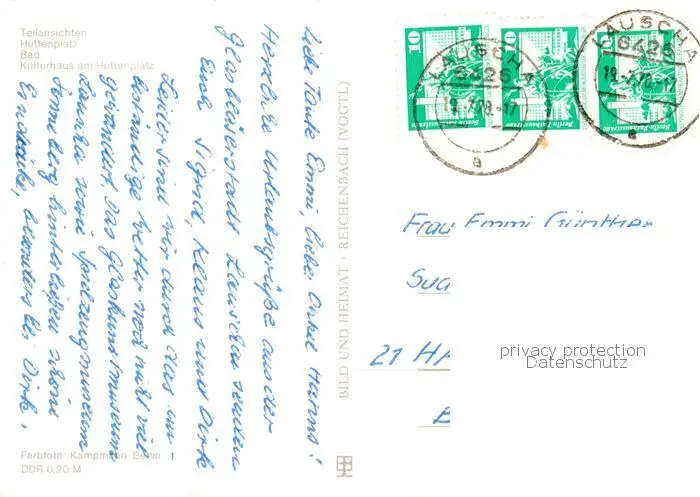 Teilansichten
Hüttenplatz
Bad
Kulturhaus am Hüttenplatz
Liebe Tante Emmi, liebe Onkel Hanns!
Herzliche Urlaubsgrüße aus der
Glasbläserstadt Lauscha senden
Euch Sigrid, Klaus und Dirk
Leider sind wir durch das un-
beständige Wetter noch nicht viel
gewandert. Das Glaskunstmuseum
Lauscha sowie Spielzeugmuseum
Sonneberg hinterließen schöne
Eindrücke, besonders bei Dirk.
Farbfoto: Kampmann Berlin
DDR 0,20 M
BILD UND HEIMAT · REICHENBACH (VOGTL)
10
Berlin, Rathausstraße
10
Berlin, Rathausstraße
Berlin, Rathausstraße
LAUSCHA
6426
a
LAUSCHA
6426
a
Frau Emmi Günther
21 HA
privacy protection
Datenschutz